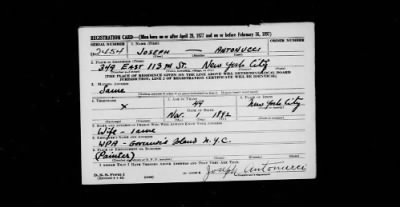 REGISTRATION CARD—(Men born on or after April 28, 1877 and on or before February 16, 1897)
SERIAL NUMBER 1. NAME (Print) ORDER NUMBER
2454 JOSEPH — ANTONUCCI
2. PLACE OF RESIDENCE (Print)
349 EAST 113 St. New York City
[THE PLACE OF RESIDENCE GIVEN ON THE LINE ABOVE WILL DETERMINE LOCAL BOARD
JURISDICTION; LINE 2 OF REGISTRATION CERTIFICATE WILL BE IDENTICAL]
3. MAILING ADDRESS
Same
4. TELEPHONE 5. AGE IN YEARS 6. PLACE OF BIRTH
X 49 New York City
Nov. 1892
7. NAME AND ADDRESS OF PERSON WHO WILL ALWAYS KNOW YOUR ADDRESS
Wife - same
8. EMPLOYER'S NAME AND ADDRESS
WPA - Governor's Island N.Y.C.
9. PLACE OF EMPLOYMENT OR BUSINESS
(Painter)
I AFFIRM THAT I HAVE VERIFIED ABOVE ANSWERS AND THAT THEY ARE TRUE.
D. S. S. Form 1
Joseph Antonucci